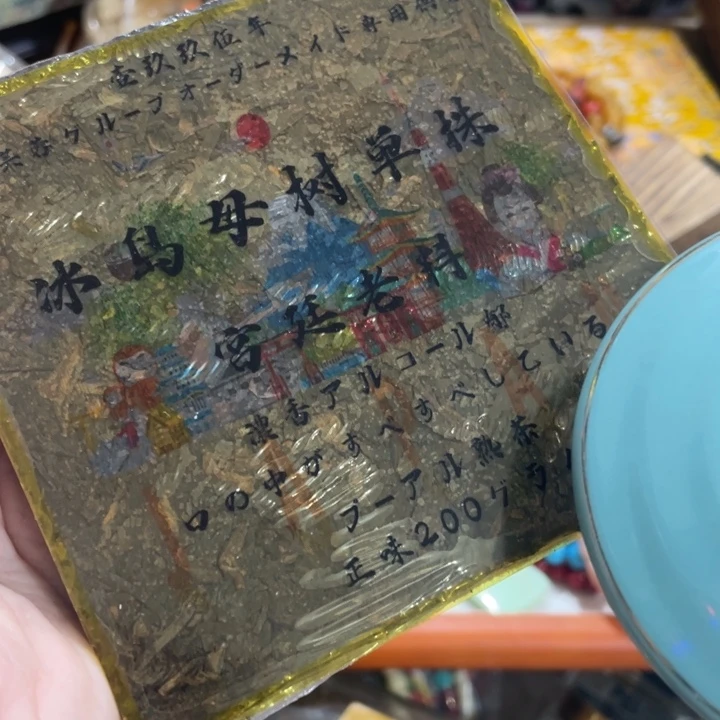 壹玖玖伍年
茶香グループオーダーメイド専用
冰島母树单株
宫廷老料
濃香アルコール郁
口の中がすべすべしている
プーアル熟茶
正味200グラム